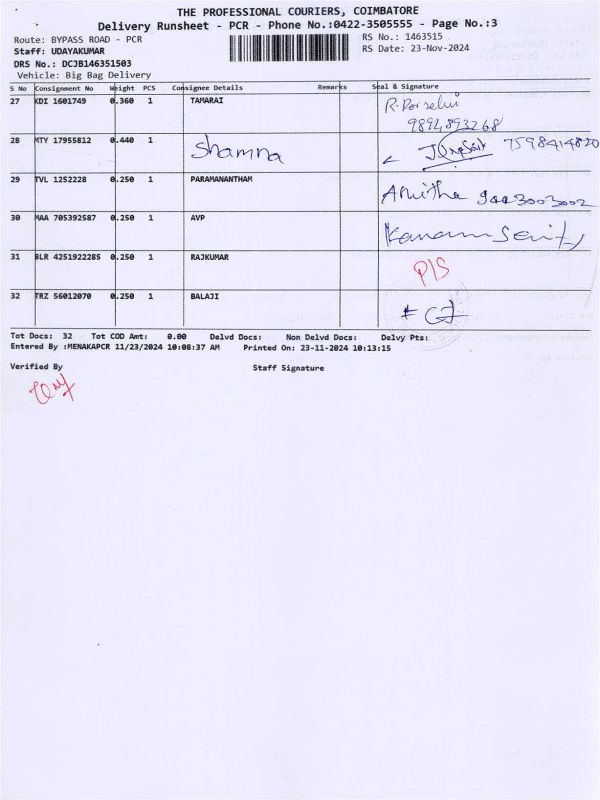 THE PROFESSIONAL COURIERS, COIMBATORE
Delivery Runsheet - PCR - Phone No.:0422-3505555 - Page No.:3
Route: BYPASS ROAD - PCR
RS No.: 1463515
Staff: UDAYAKUMAR
RS Date: 23-Nov-2024
DRS No.: DCJB146351503
Vehicle: Big Bag Delivery
S No Consignment No Weight PCS Consignee Details Remarks Seal & Signature
27 KDI 1601749 0.360 1 TAMARAI
9894893268
28 MTY 17955812 0.440 1 Shamna 7598414820
29 TVL 1252228 0.250 1 PARAMANANTHAM Anitha 9443003002
30 MAA 705392587 0.250 1 AVP
31 BLR 4251922285 0.250 1 RAJKUMAR P/S
32 TRZ 56012070 0.250 1 BALAJI
Tot Docs: 32 Tot COD Amt: 0.00 Delvd Docs: Non Delvd Docs: Delvy Pts:
Entered By :MENAKAPCR 11/23/2024 10:08:37 AM Printed On: 23-11-2024 10:13:15
Verified By Staff Signature